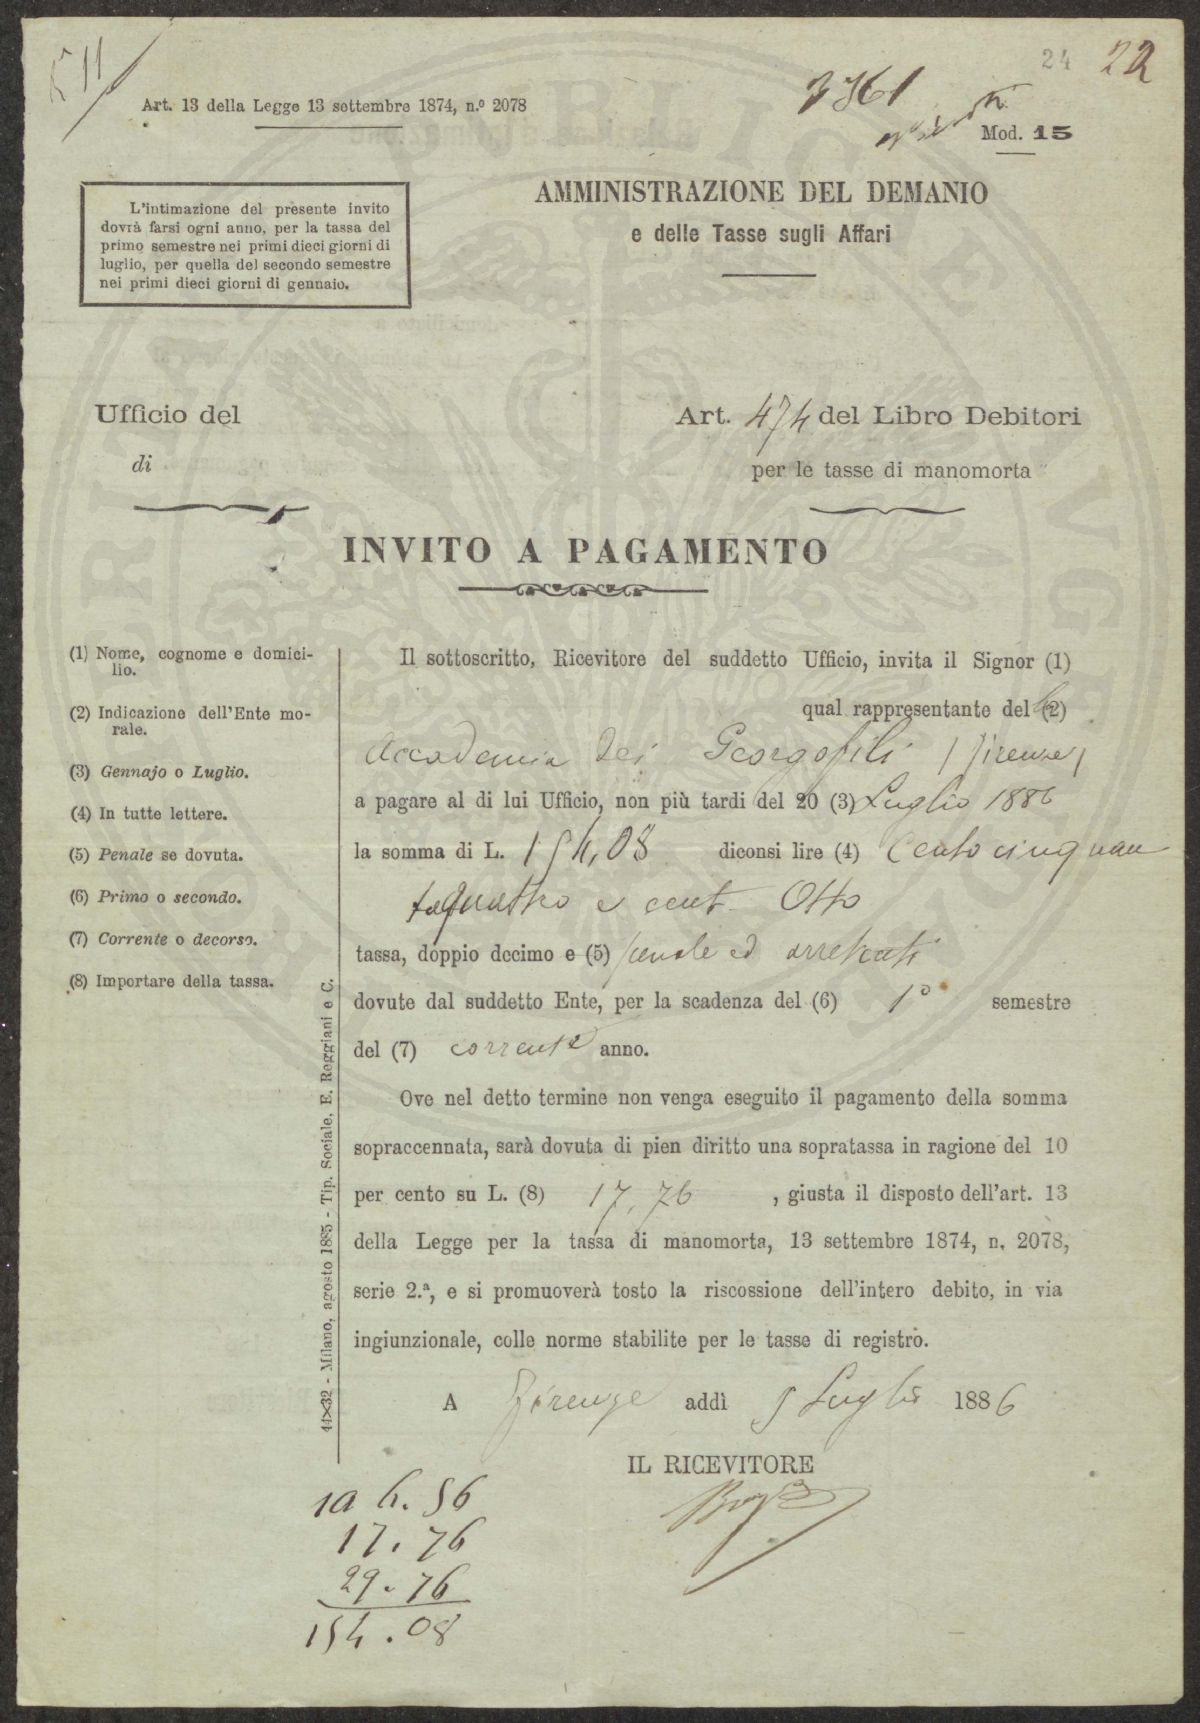 511
24 22
Art. 13 della Legge 13 settembre 1874, n.º 2078
Mod. 15
L'intimazione del presente invito
dovrà farsi ogni anno, per la tassa del
primo semestre nei primi dieci giorni di
luglio, per quella del secondo semestre
nei primi dieci giorni di gennaio.
AMMINISTRAZIONE DEL DEMANIO
e delle Tasse sugli Affari
Ufficio del
di
Art. 474 del Libro Debitori
per le tasse di manomorta
INVITO A PAGAMENTO
(1) Nome, cognome e domici-
lio.
(2) Indicazione dell'Ente mo-
rale.
(3) Gennajo o Luglio.
(4) In tutte lettere.
(5) Penale se dovuta.
(6) Primo o secondo.
(7) Corrente o decorso.
(8) Importare della tassa.
44×32 - Milano, agosto 1885 - Tip. Sociale, E. Reggiani e C.
Il sottoscritto, Ricevitore del suddetto Ufficio, invita il Signor (1)
qual rappresentante del (2)
Accademia dei Georgofili (Firenze)
a pagare al di lui Ufficio, non più tardi del 20 (3) Luglio 1886
la somma di L. 154,08 diconsi lire (4) Centocinquan
taquattro e cent. Otto
tassa, doppio decimo e (5) penale ed arretrati
dovute dal suddetto Ente, per la scadenza del (6) 1º semestre
del (7) corrente anno.
Ove nel detto termine non venga eseguito il pagamento della somma
sopraccennata, sarà dovuta di pien diritto una sopratassa in ragione del 10
per cento su L. (8) 17.76 , giusta il disposto dell'art. 13
della Legge per la tassa di manomorta, 13 settembre 1874, n. 2078,
serie 2.ª, e si promuoverà tosto la riscossione dell'intero debito, in via
ingiunzionale, colle norme stabilite per le tasse di registro.
A Firenze addì 9 Luglio 1886
IL RICEVITORE
106.56
17.76
29.76
154.08